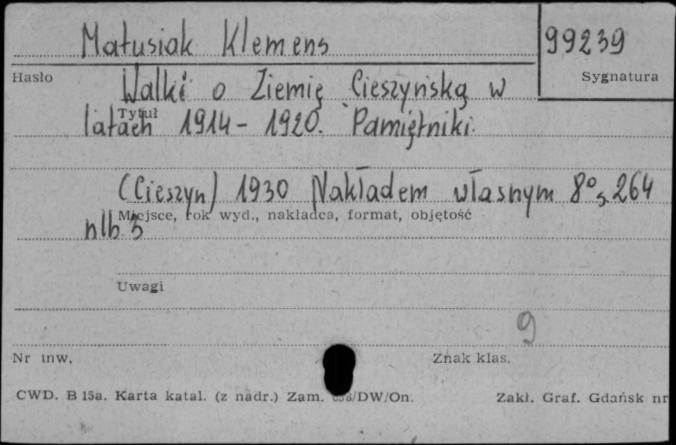 Matusiak Klemens
99239
Hasło
Sygnatura
Walki o Ziemię Cieszyńską w
Tytuł
latach 1914 - 1920. Pamiętniki.
(Cieszyn) 1930 Nakładem własnym 8° s. 264
Miejsce, rok wyd., nakładca, format, objętość
nlb 5
Uwagi
9
Nr inw.
Znak klas.
CWD. B 15a. Karta katal. (z nadr.) Zam. /DW/On.
Zakł. Graf. Gdańsk nr